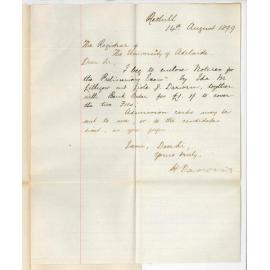 Redhill
14th August 1899
The Registrar
The University of Adelaide
Dear Sir,
I beg to enclose Notices for
the Preliminary Exam by Ida M.
and J. together
with Bank Order for to cover
the two Fees.
Admission cards may be
sent to me or to the candidates
as you
Yours truly,
H